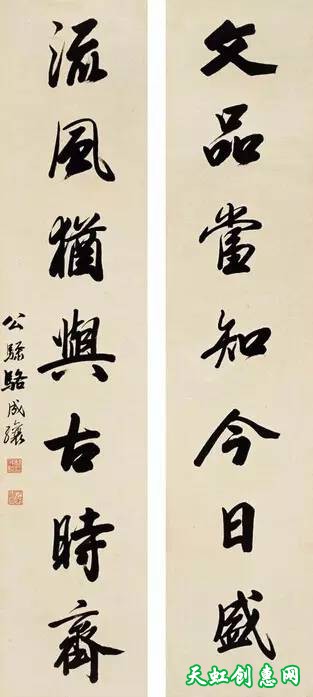 文品當知今日盛
流風猶與古時齊
公驌駱成驤
天虹创惠网